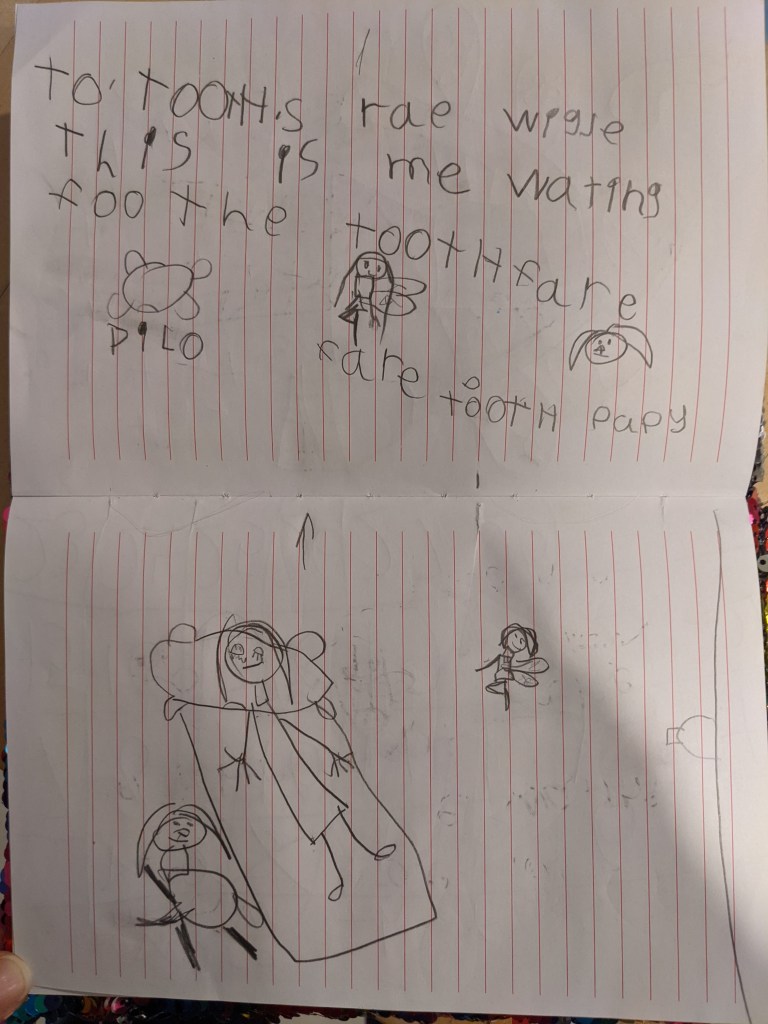 To TOOTH.s rae wigle
This is me wating
foo the TOOTH fare
PILO
fare TOOTH papy